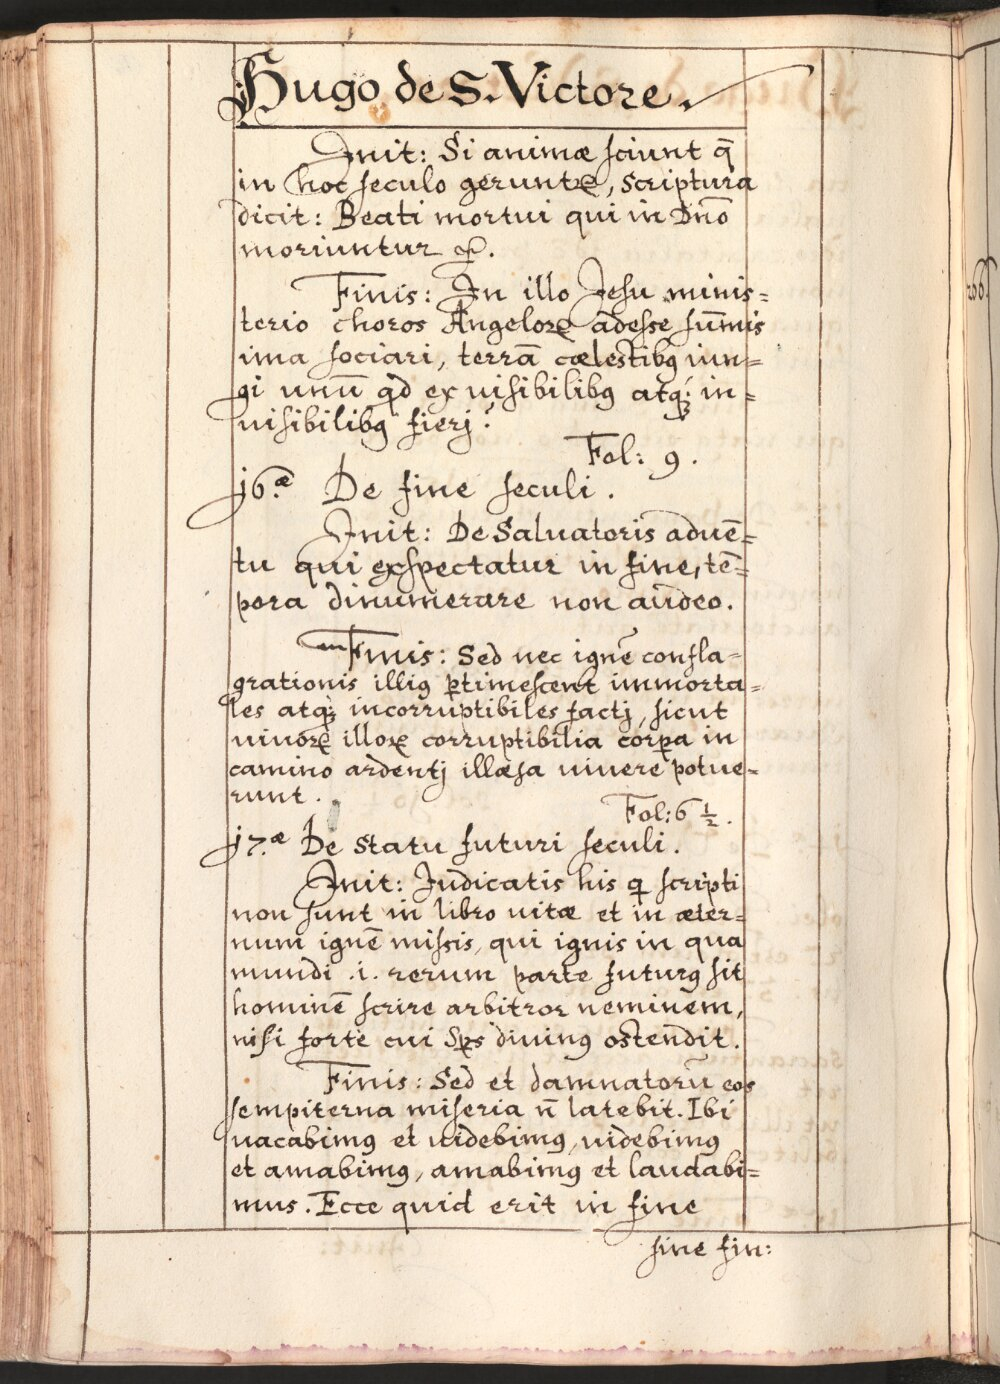 Hugo de S. Victore.
Init: Si animæ sciunt q̄
in hoc seculo geruntꝛ, scriptura
dicit: Beati mortui qui in Dn̄o
moriuntur ꝛc.
Finis: In illo Jesu minis=
terio choros Angeloꝝ adesse sum̄is
ima sociari, terrā cœlestibꝰ iun=
gi unū qd ex uisibilibꝰ atqꝫ in=
uisibilibꝰ fierj?
Fol: 9.
j6.æ De fine seculi.
Init: De Saluatoris aduē=
tu qui exspectatur in fine, tē=
pora dinumerare non audeo.
Finis: Sed nec ignē confla=
grationis illiꝰ ꝑtimescent immorta=
les atqꝫ incorruptibiles factj, sicut
uiuoꝝ illoꝝ corruptibilia corꝑa in
camino ardentj illæsa uiuere potue=
runt.
Fol: 6 ½.
j7.æ De statu futuri seculi.
Init: Judicatis his q scripti
non sunt in libro uitæ et in æter=
num ignē missis, qui ignis in qua
mundi .i. rerum parte futurꝰ sit
hominē scrire arbitror neminem,
nisi forte cui Sps diuinꝰ ostendit.
Finis: Sed et damnatorū eos
sempiterna miseria n̄ latebit. Ibi
uacabimꝰ et uidebimꝰ, uidebimꝰ
et amabimꝰ, amabimꝰ et laudabi=
mus. Ecce quid erit in fine
sine fin:
266.